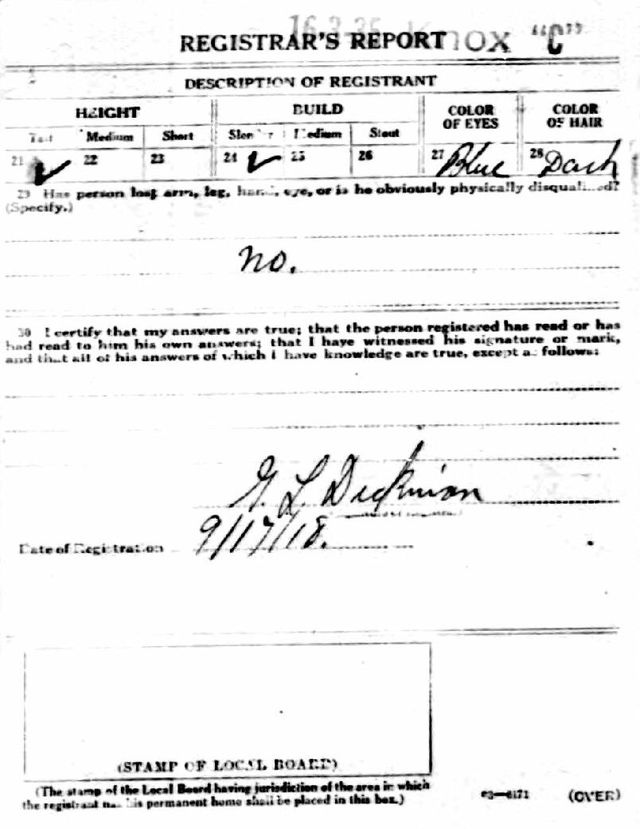 16-3-35 Knox "C"
REGISTRAR'S REPORT
DESCRIPTION OF REGISTRANT
HEIGHT BUILD COLOR OF EYES COLOR OF HAIR
Tall Medium Short Slender Medium Stout
21 ✓ 22 23 24 ✓ 25 26 27 Blue 28 Dark
29 Has person lost arm, leg, hand, eye, or is he obviously physically disqualified?
(Specify.)
no.
30 I certify that my answers are true; that the person registered has read or has
had read to him his own answers; that I have witnessed his signature or mark,
and that all of his answers of which I have knowledge are true, except as follows:
G. L. Dickman
Date of Registration 9/17/18.
(STAMP OF LOCAL BOARD)
(The stamp of the Local Board having jurisdiction of the area in which
the registrant has his permanent home shall be placed in this box.)
03—6171 (OVER)